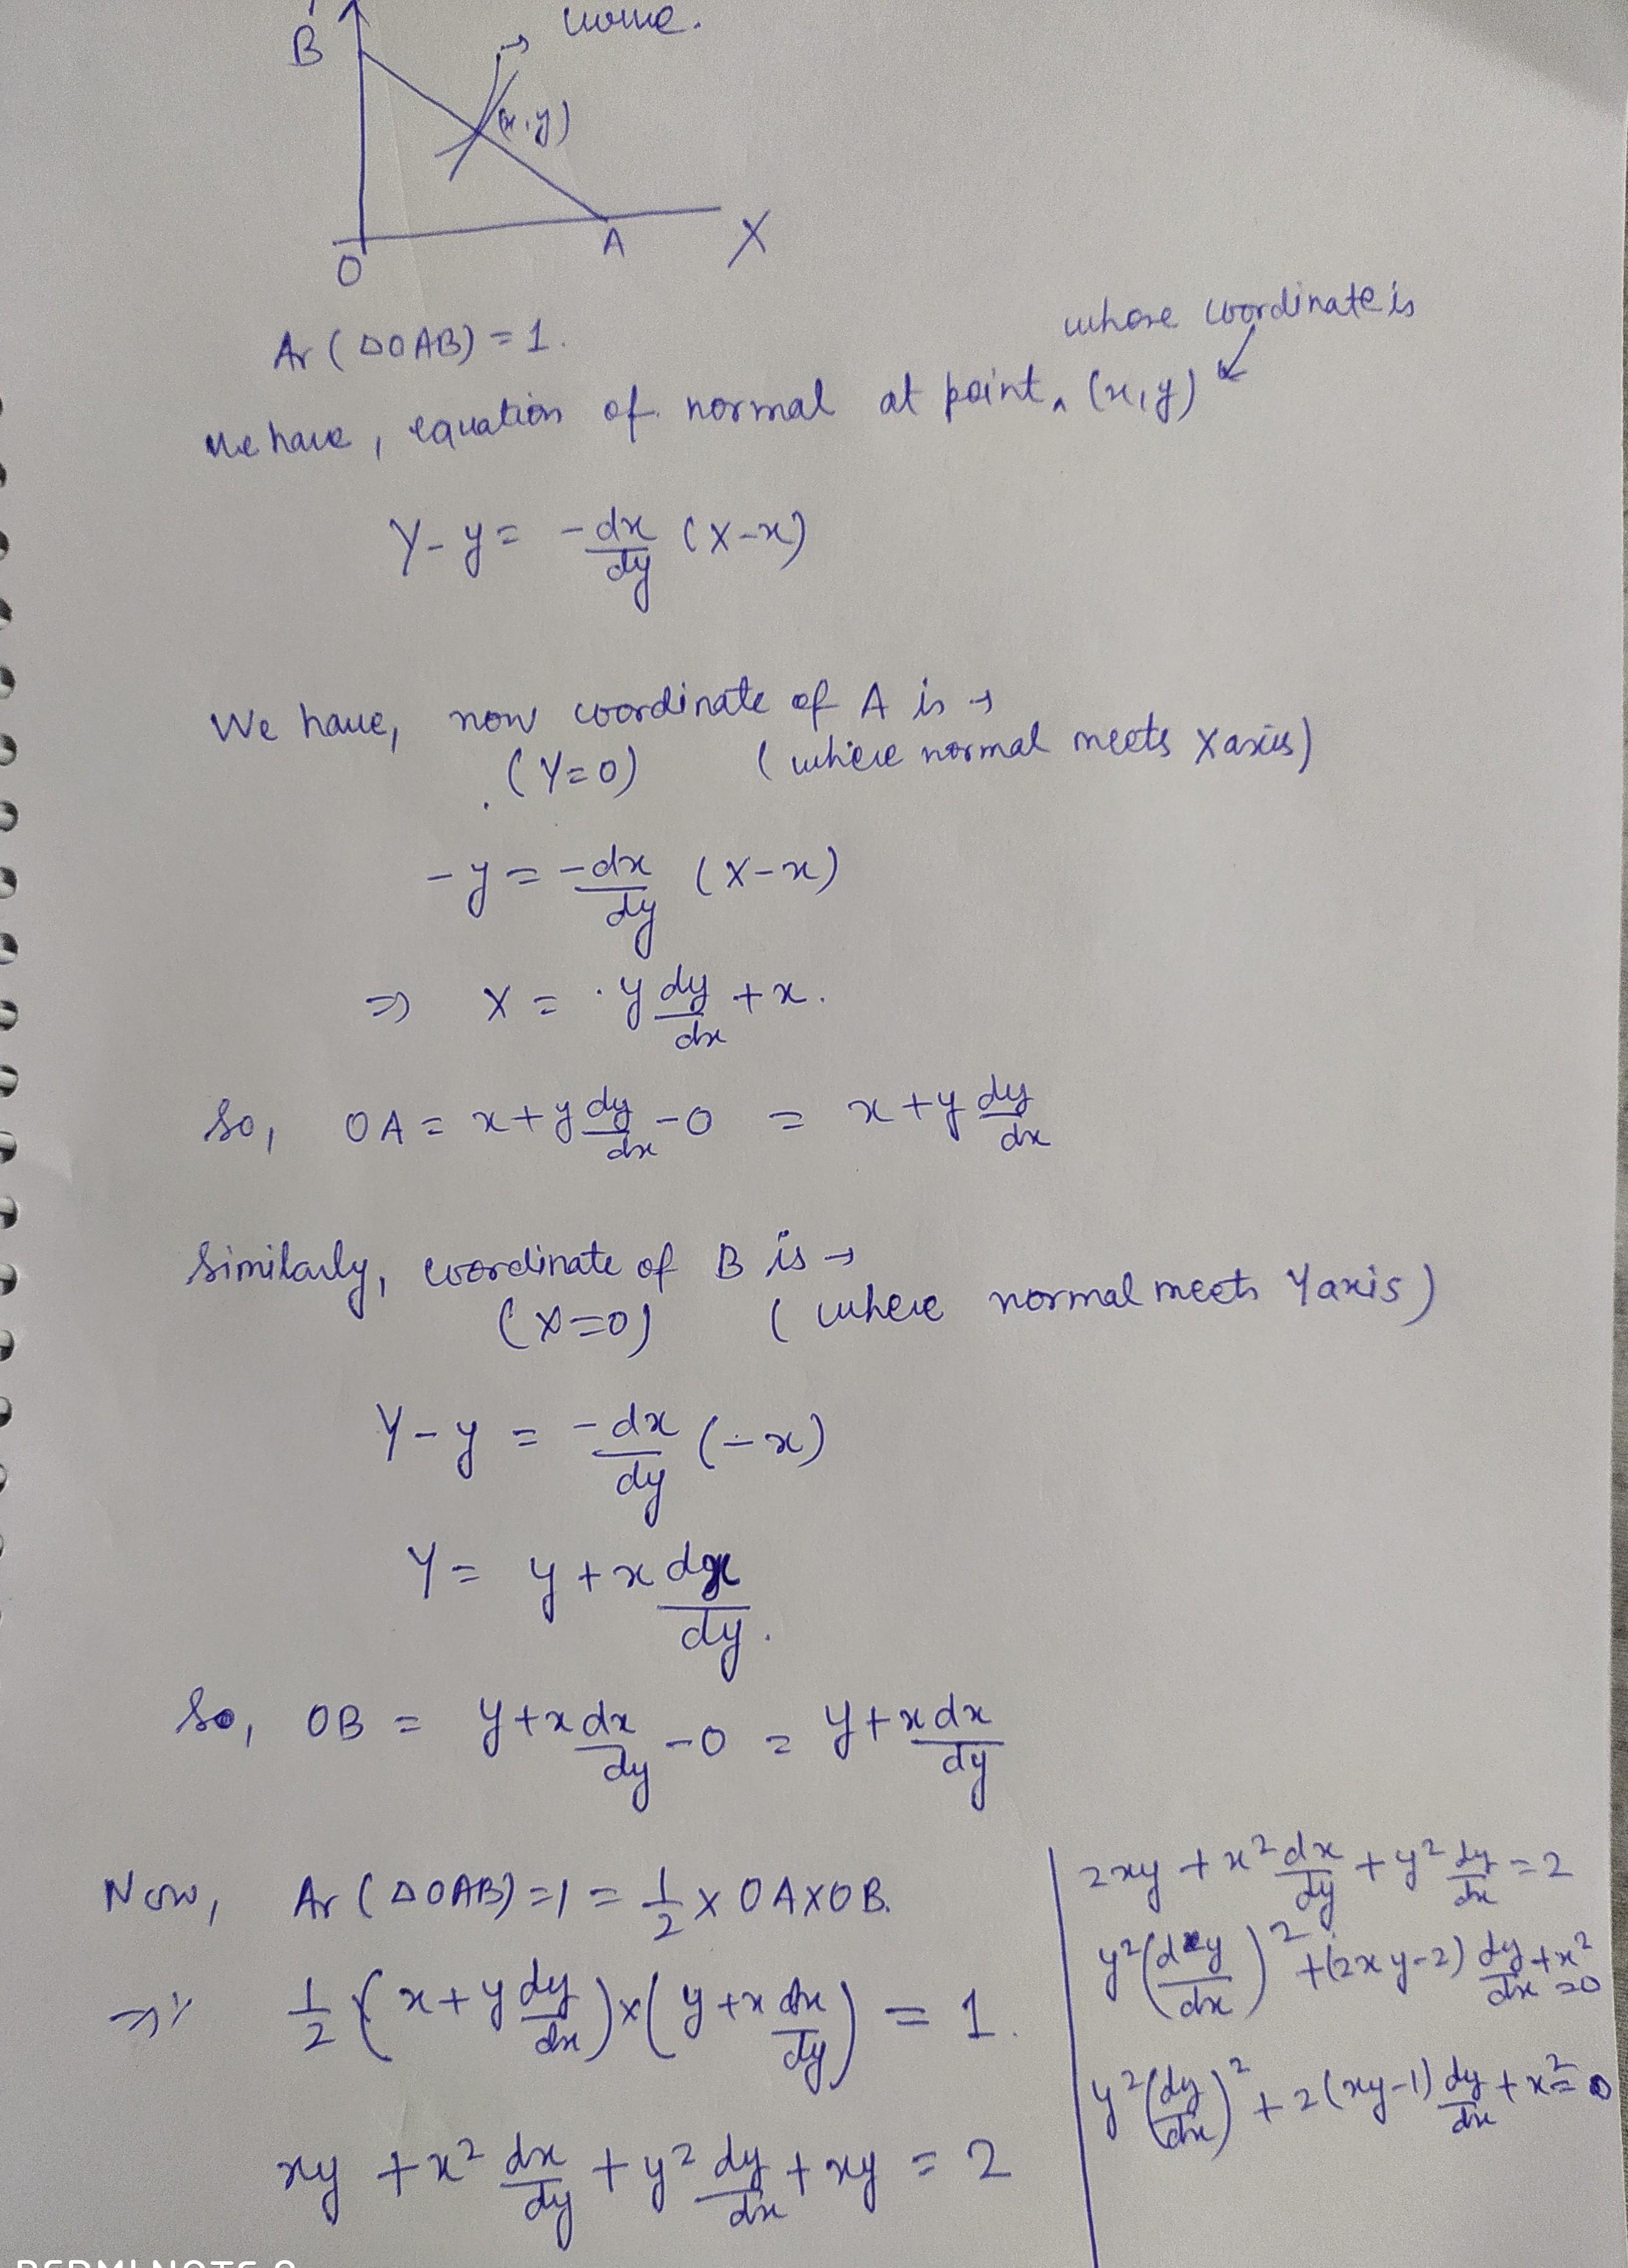 B
curve.
(x,y)
O
A
X
Ar (ΔOAB) = 1.
whose coordinate is
We have, equation of normal at point ‸ (x,y)
Y - y = -dx/dy (X-x)
We have, now coordinate of A is →
(Y=0) (where normal meets X axis)
-y = -dx/dy (X-x)
⇒ X = y dy/dx + x.
So, OA = x + y dy/dx - 0 = x + y dy/dx
Similarly, coordinate of B is →
(X=0) (where normal meets Y axis)
Y - y = -dx/dy (-x)
Y = y + x dx/dy.
So, OB = y + x dx/dy - 0 = y + x dx/dy
Now, Ar (ΔOAB) = 1 = 1/2 × OA×OB.
⇒ 1/2 (x + y dy/dx) × (y + x dx/dy) = 1.
xy + x² dx/dy + y² dy/dx + xy = 2
2xy + x² dx/dy + y² dy/dx = 2
y² (dy/dx)² + (2xy-2) dy/dx + x² = 0
y² (dy/dx)² + 2(xy-1) dy/dx + x² = 0